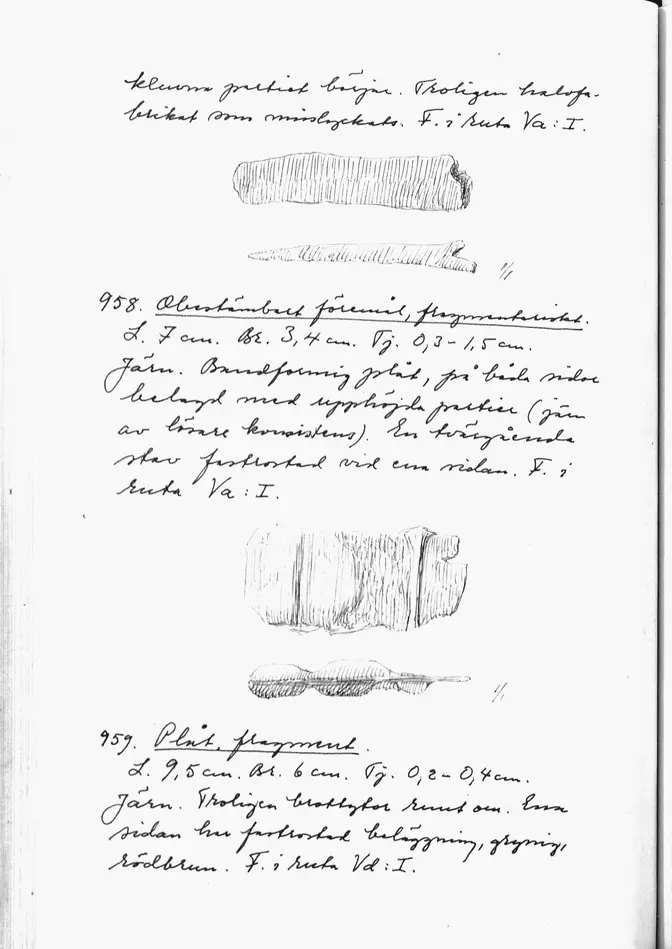 kluvna partiet börjar. Troligen halvfa-
brikat som misslyckats. F. i ruta Va: I.
1/1
958. Obestämbart föremål, fragmentariskt.
L. 7 cm. Br. 3,4 cm. Tj. 0,3-1,5 cm.
Järn. Bandformig plåt, på båda sidor
belagd med upphöjda partier (järn
av lösare konsistens). En tvärgående
stav fastrostad vid ena sidan. F. i
ruta Va: I.
1/1
959. Plåt, fragment.
L. 9,5 cm. Br. 6 cm. Tj. 0,2-0,4 cm.
Järn. Troligen brottytor runt om. Ena
sidan har fastrostad beläggning, grynig,
rödbrun. F. i ruta Vd: I.